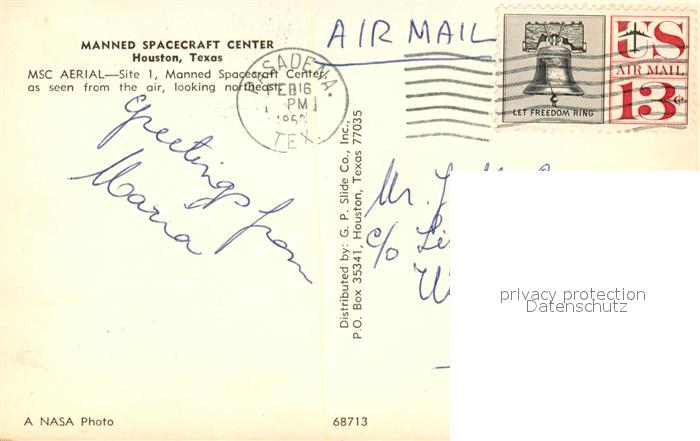 MANNED SPACECRAFT CENTER
Houston, Texas
MSC AERIAL—Site 1, Manned Spacecraft Center,
as seen from the air, looking northeast.
AIR MAIL
PASADENA.
FEB 16
PM
TEX.
LET FREEDOM RING
US
AIR MAIL
13c
Greetings from
Maria
Distributed by: G. P. Slide Co., Inc.,
P.O. Box 35341, Houston, Texas 77035
Mr.
c/o
privacy protection
Datenschutz
A NASA Photo
68713